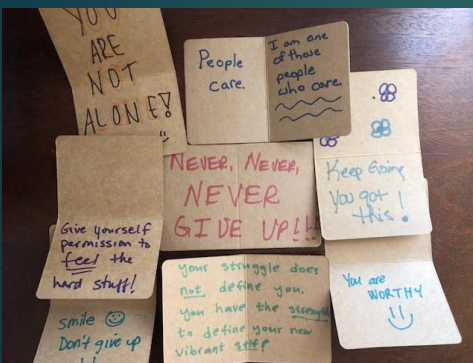 YOU
ARE
NOT
ALONE!
People
care.
I am one
of those
people
who care.
NEVER, NEVER,
NEVER
GIVE UP!!
Keep Going
You got
this!
Give yourself
permission to
feel the
hard stuff!
your struggle does
not define you.
You have the strength
to define your new
vibrant self!
You are
WORTHY
smile
Don't give up